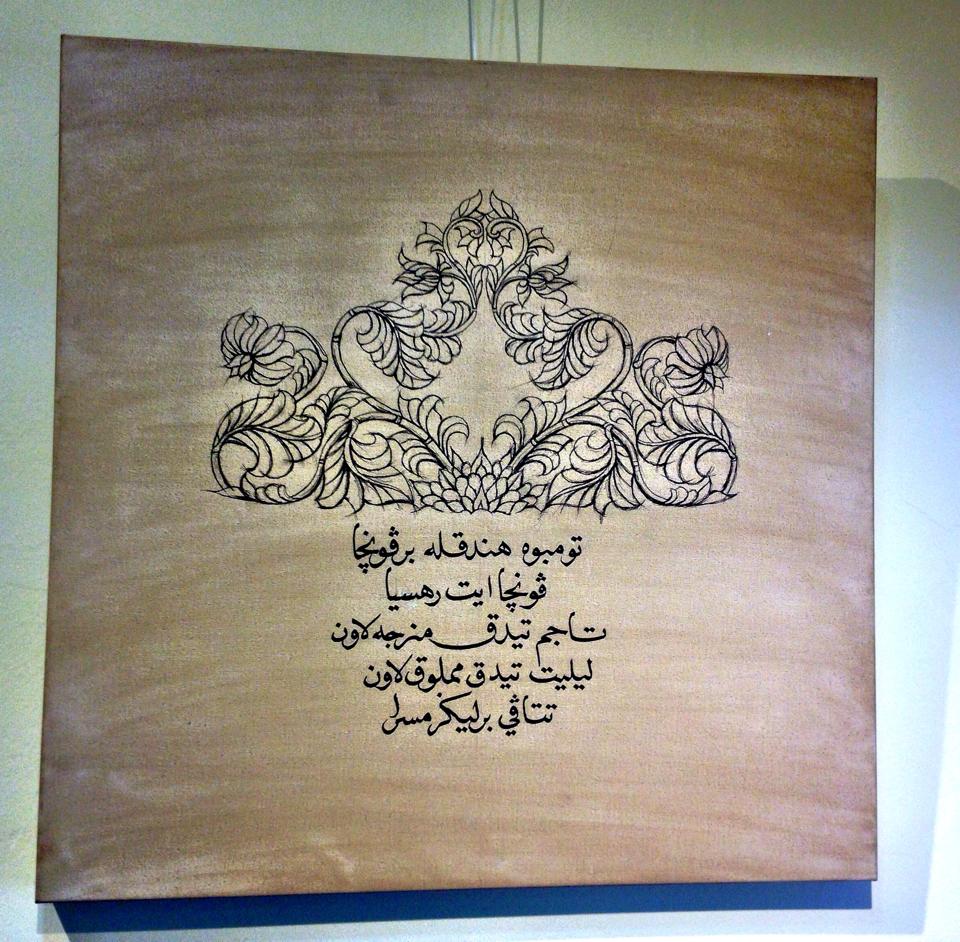 تومبوه هندقله برڤونچا
ڤونچا ايت رهسيا
تاجم تيدق منرجه لاون
ليليت تيدق مملوق لاون
تتاڤي برليكر مسرا